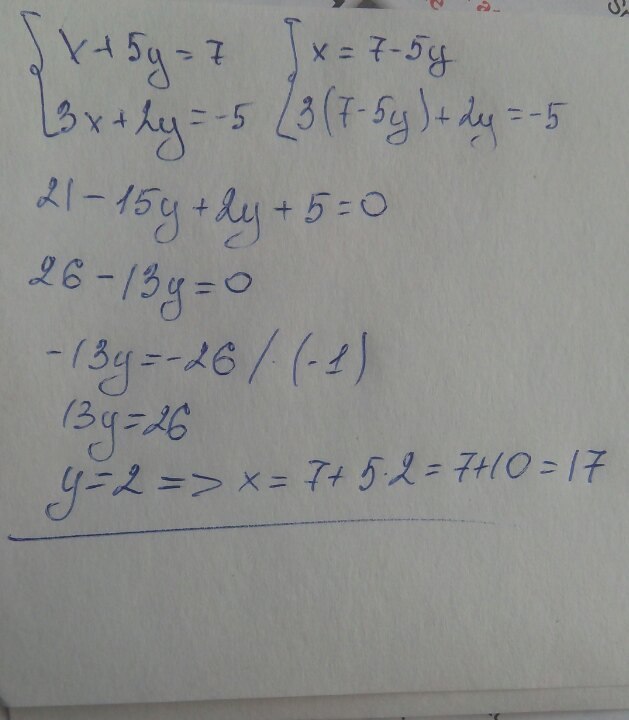 { x + 5y = 7 [ x = 7 - 5y
3x + 2y = -5 3(7 - 5y) + 2y = -5
21 - 15y + 2y + 5 = 0
26 - 13y = 0
-13y = -26 / · (-1)
13y = 26
y = 2 => x = 7 + 5 · 2 = 7 + 10 = 17